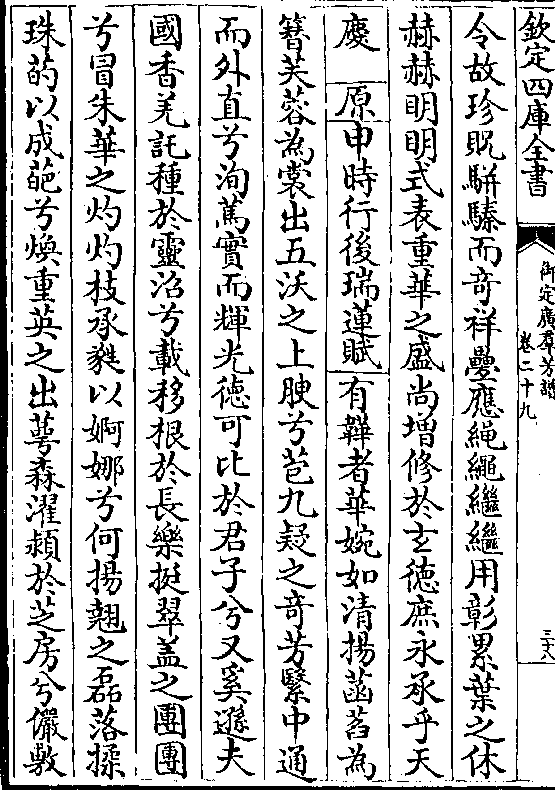 欽定四庫全書
御定廣羣芳譜
卷二十九
三十八
令故珍貺駢臻而竒祥疊應繩繩繼繼用彰累葉之休
赫赫明明式表重華之盛尚增修於𤣥德庶永承乎天
慶 原申時行後瑞蓮賦 有韡者華婉如清揚菡萏為
簪芙蓉為裳出五沃之上腴兮苞九疑之竒芳緊中通
而外直兮洵篤實而輝光德可比於君子兮又奚遜夫
國香羌託種於靈沼兮載移根於長樂挺翠盖之團團
兮冒朱華之灼灼枝承蕤以婀娜兮何揚翹之磊落揉
珠菂以成葩兮煥重英之出蕚森濯頴於芝房兮儼敷